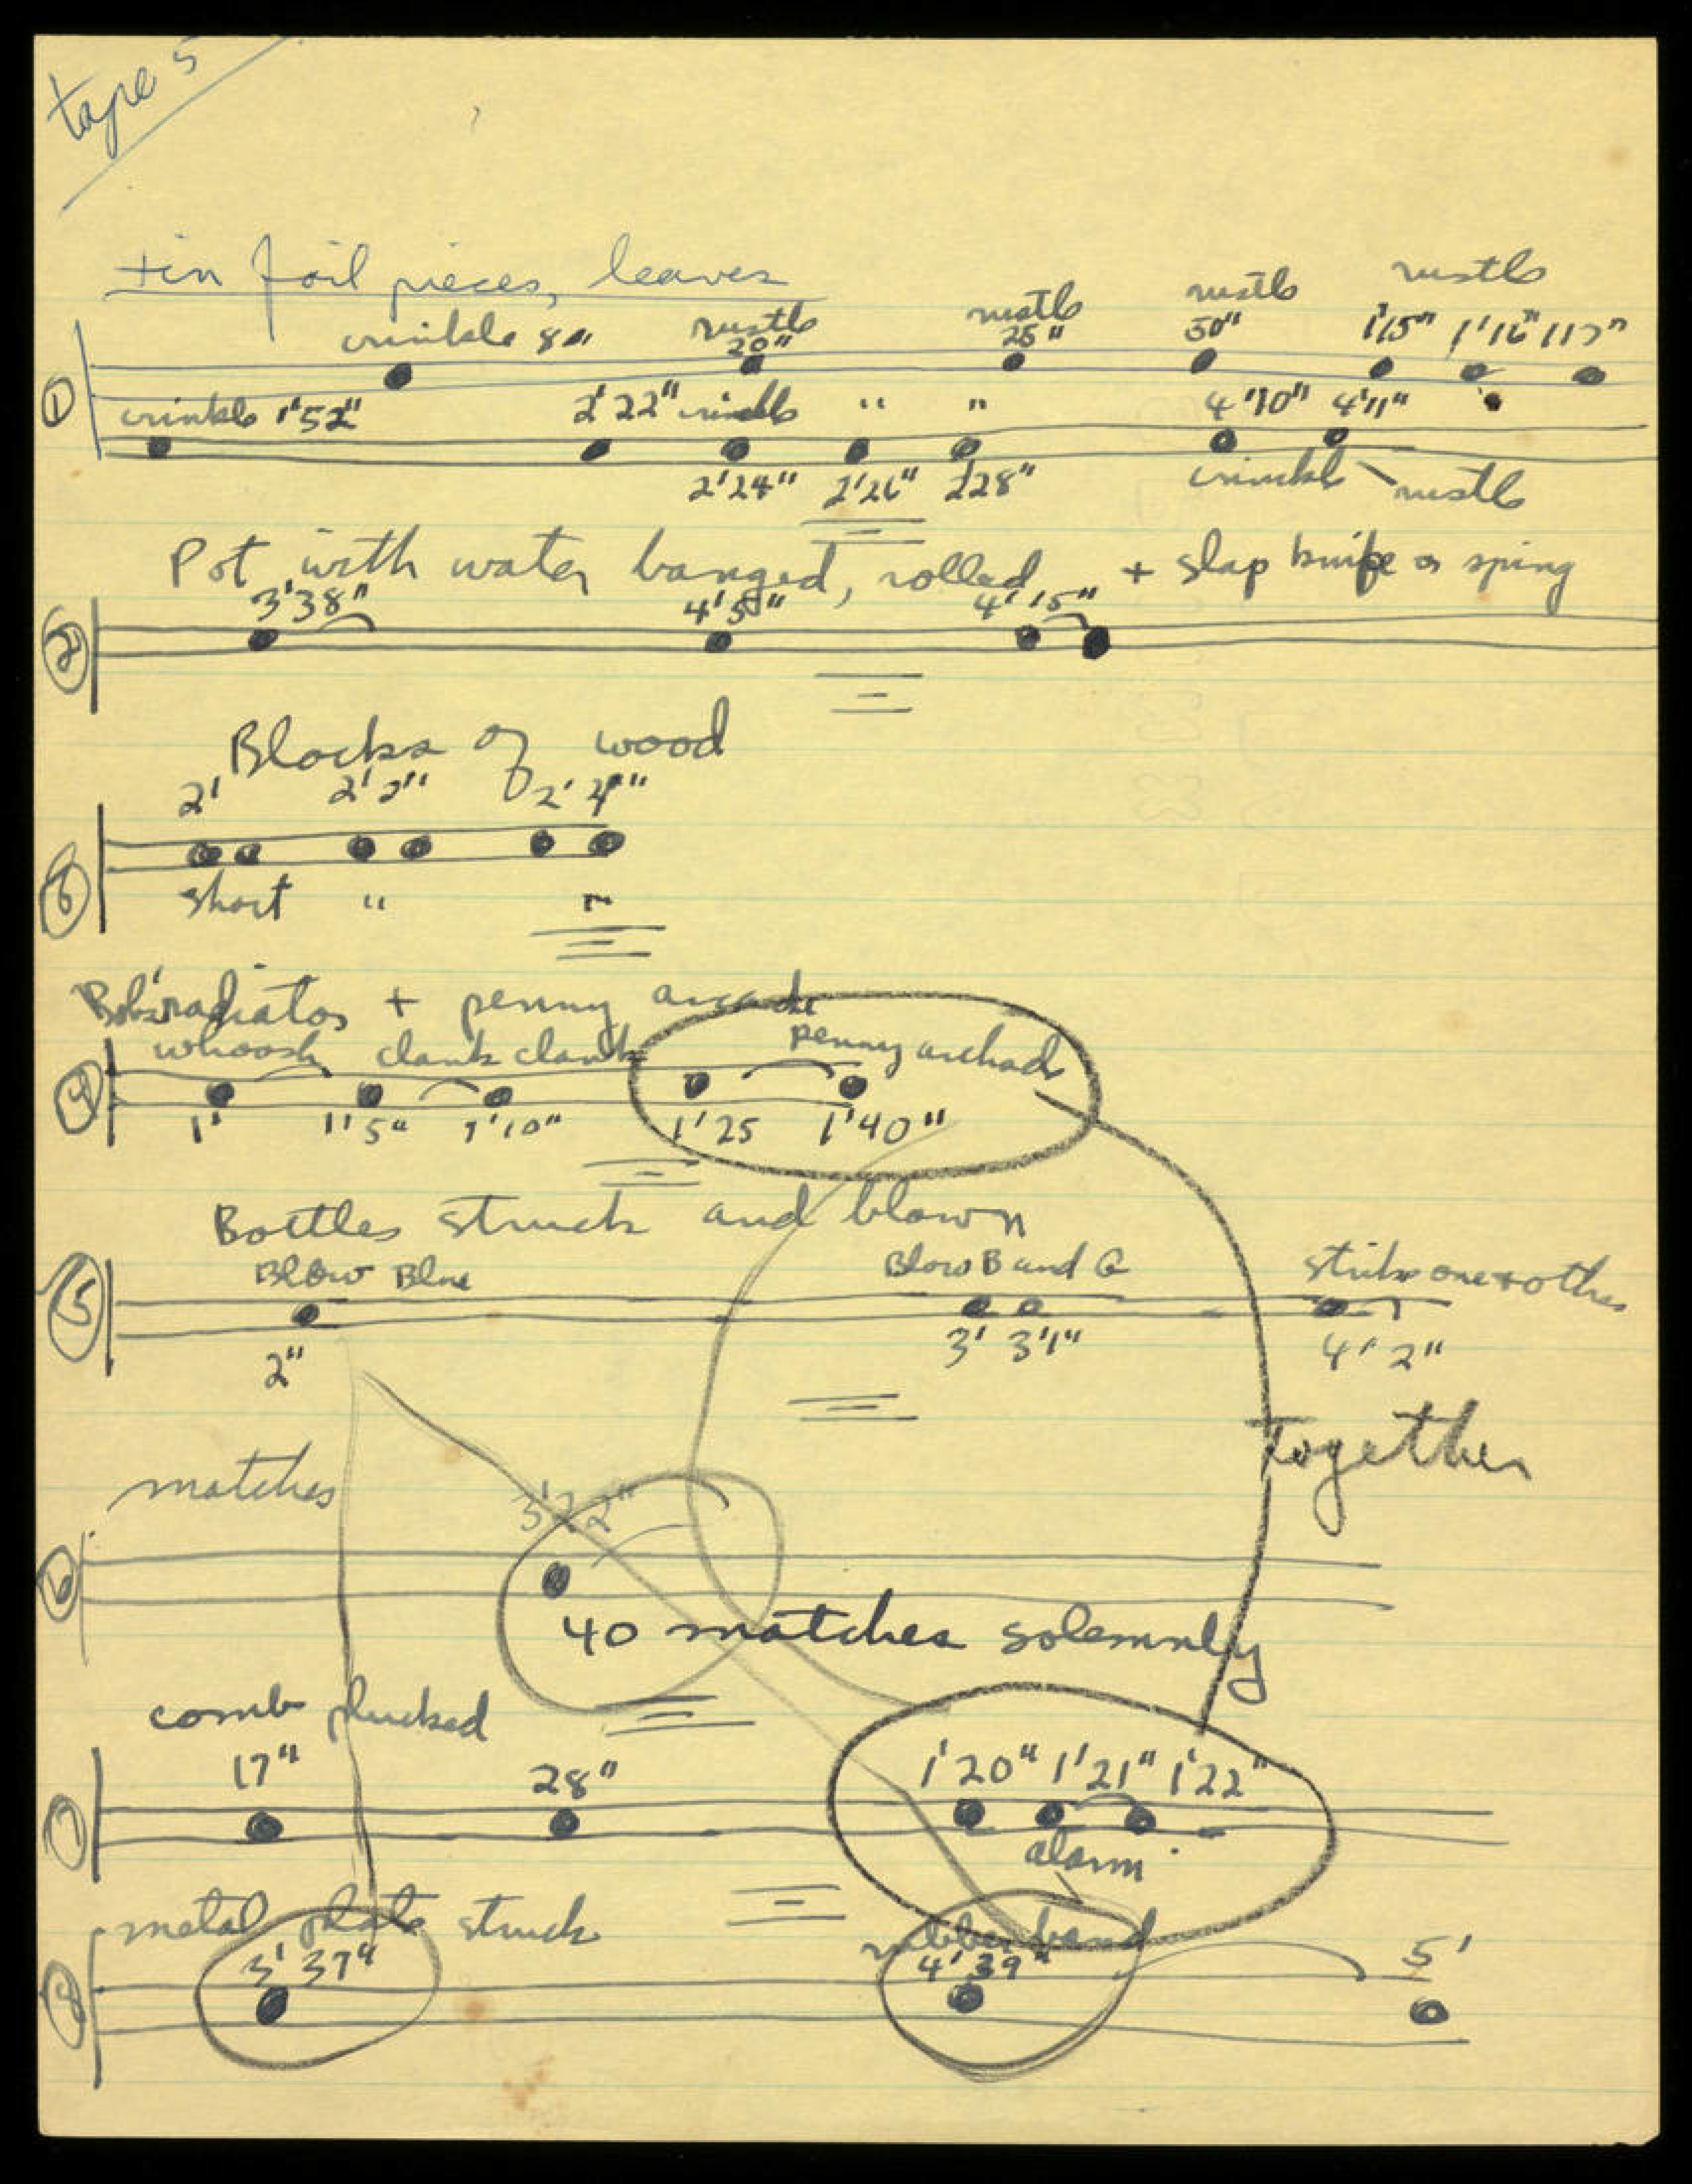 tape 5
tin foil pieces, leaves
crinkle 8" rustle 20" rustle 25" rustle 50" rustle 1'15" 1'16" 117"
①
crinkle 1'52" 2'22" crinkle " " 4'10" 4'11"
2'24" 2'26" 2'28" crinkle rustle
Pot with water banged, rolled + slap knife or spring
3'38" 4'5" 4'15"
②
Blocks of wood
2' 2'2" 2'4"
3
short " "
Bob's radiator + penny arcade
whoosh clank clank penny archade
④
1' 1'5" 1'10" 1'25 1'40"
Bottles struck and blown
Blow Blue Blow B and G strike one + other
⑤
2" 3' 3'1" 4'2"
Together
matches
3'22"
⑥
40 matches solemnly
comb plucked
17" 28" 1'20" 1'21" 1'22"
⑦
alarm
metal plate struck rubber band
3'37" 4'39" 5'
⑧